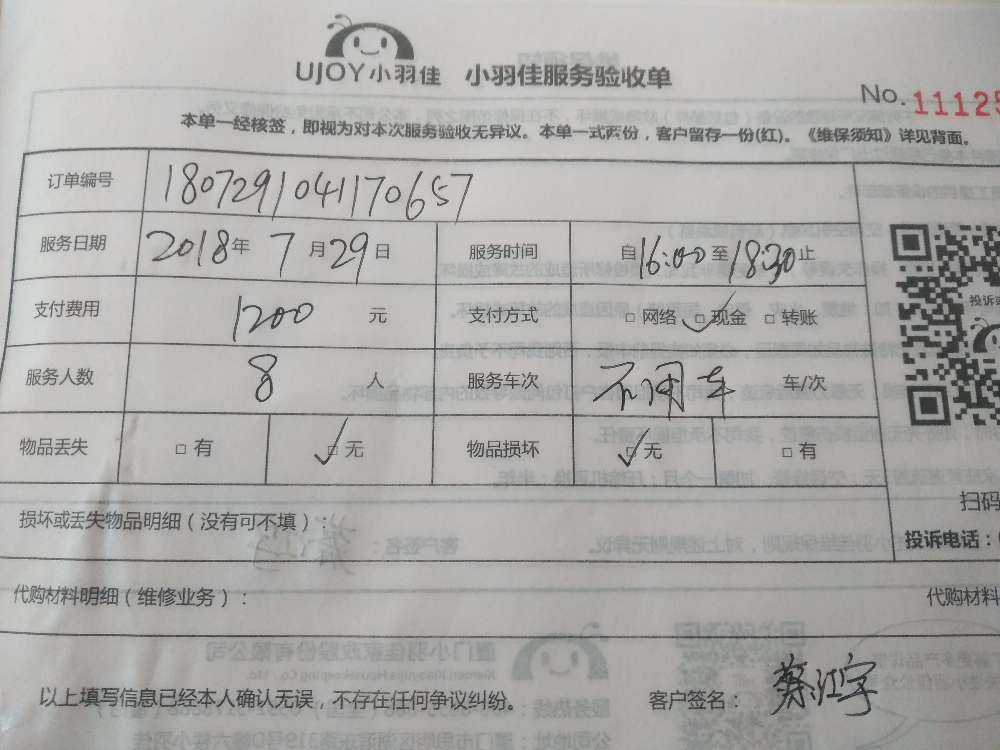 UJOY小羽佳 小羽佳服务验收单
No. 11125
本单一经核签，即视为对本次服务验收无异议。本单一式两份，客户留存一份(红)。《维保须知》详见背面。
订单编号 180729104117065​7
服务日期 2018年 7月29日 服务时间 自16:00至18:30止
支付费用 1200 元 支付方式 □ 网络 □ 现金 □ 转账
服务人数 8 人 服务车次 不用车 车/次
物品丢失 □ 有 □ 无 物品损坏 □ 无 □ 有
扫码
损坏或丢失物品明细（没有可不填）：
投诉电话：
代购材料明细（维修业务）： 代购材料
以上填写信息已经本人确认无误，不存在任何争议纠纷。 客户签名：蔡江宇